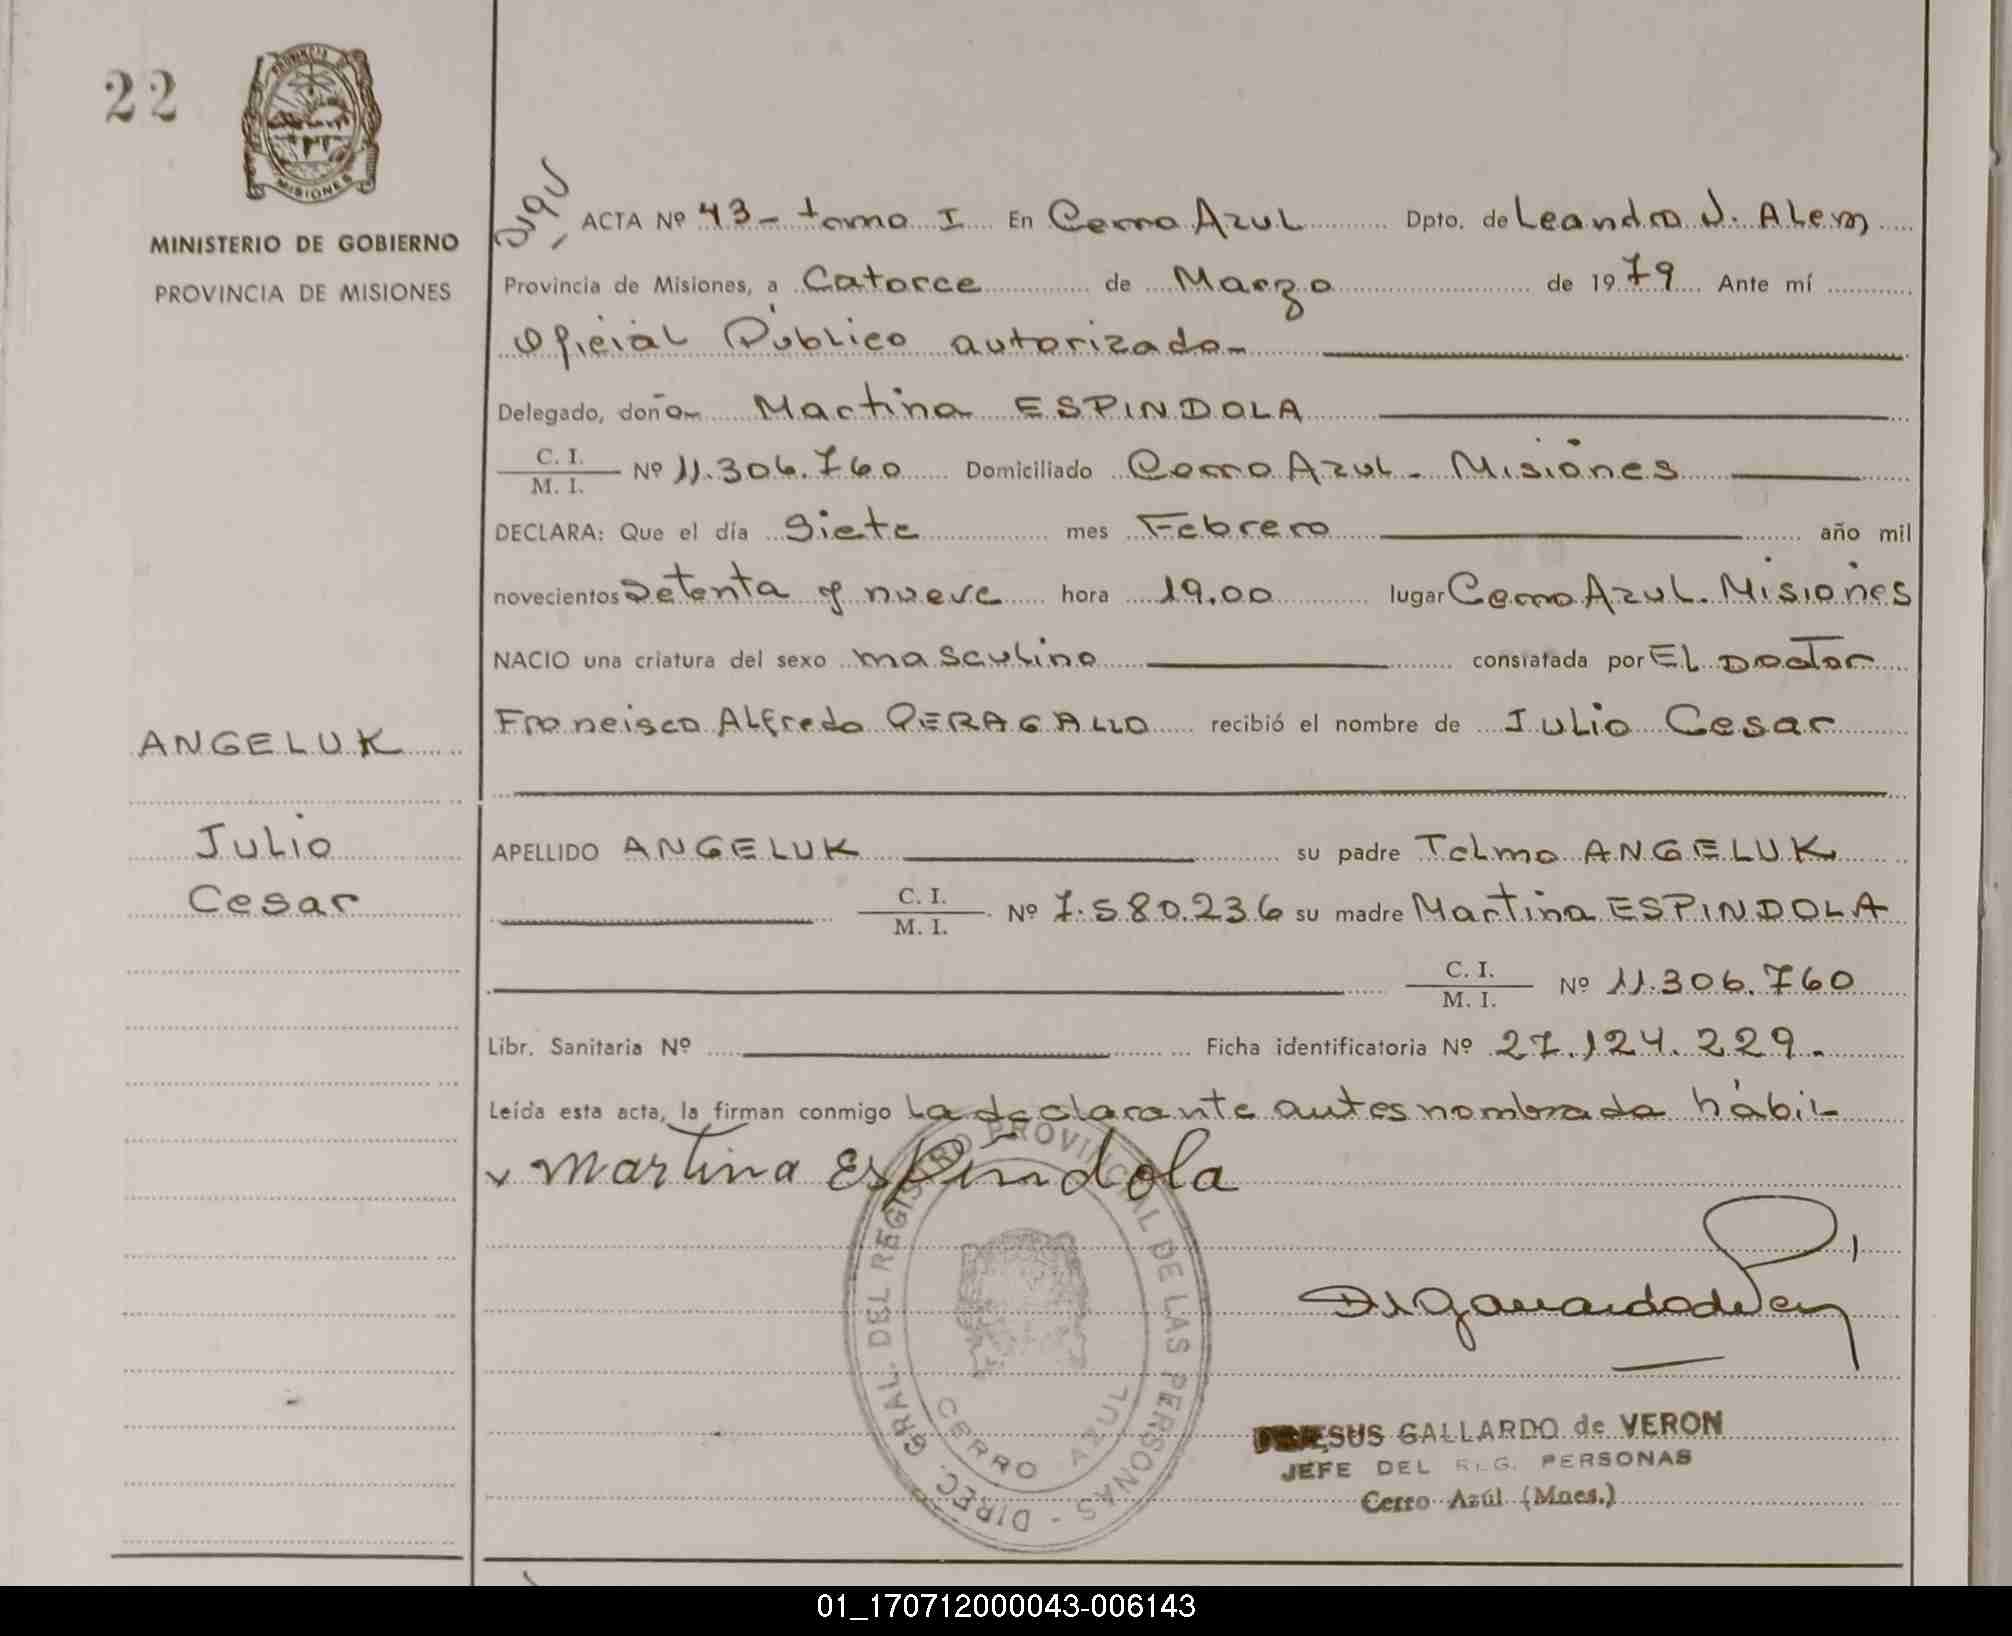 22
PROVINCIA
MISIONES
MINISTERIO DE GOBIERNO
PROVINCIA DE MISIONES
ACTA Nº 43 - tomo I En Cerro Azul Dpto. de Leandro N. Alem
Provincia de Misiones, a Catorce de Marzo de 1979 Ante mí
Oficial Público autorizado
Delegado, doña Martina ESPINDOLA
C. I.
M. I. Nº 11.306.760 Domiciliado Cerro Azul - Misiones
DECLARA: Que el día Siete mes Febrero año mil
novecientos Setenta y nueve hora 19,00 lugar Cerro Azul. Misiones
NACIO una criatura del sexo masculino constatada por El Doctor
Francisco Alfredo PERAGALLO recibió el nombre de Julio Cesar
ANGELUK
Julio
Cesar
APELLIDO ANGELUK su padre Telmo ANGELUK
C. I.
M. I. Nº 7.580.236 su madre Martina ESPINDOLA
C. I.
M. I. Nº 11.306.760
Libr. Sanitaria Nº Ficha identificatoria Nº 27.124.229.
Leída esta acta, la firman conmigo La declarante antes nombrada hábil
Martina Espindola
DIREC. GRAL. DEL REGISTRO PROVINCIAL DE LAS PERSONAS -
CERRO AZUL
GALLARDO de VERON
JEFE DEL REG. PERSONAS
Cerro Azúl (Mnes.)
01_170712000043-006143